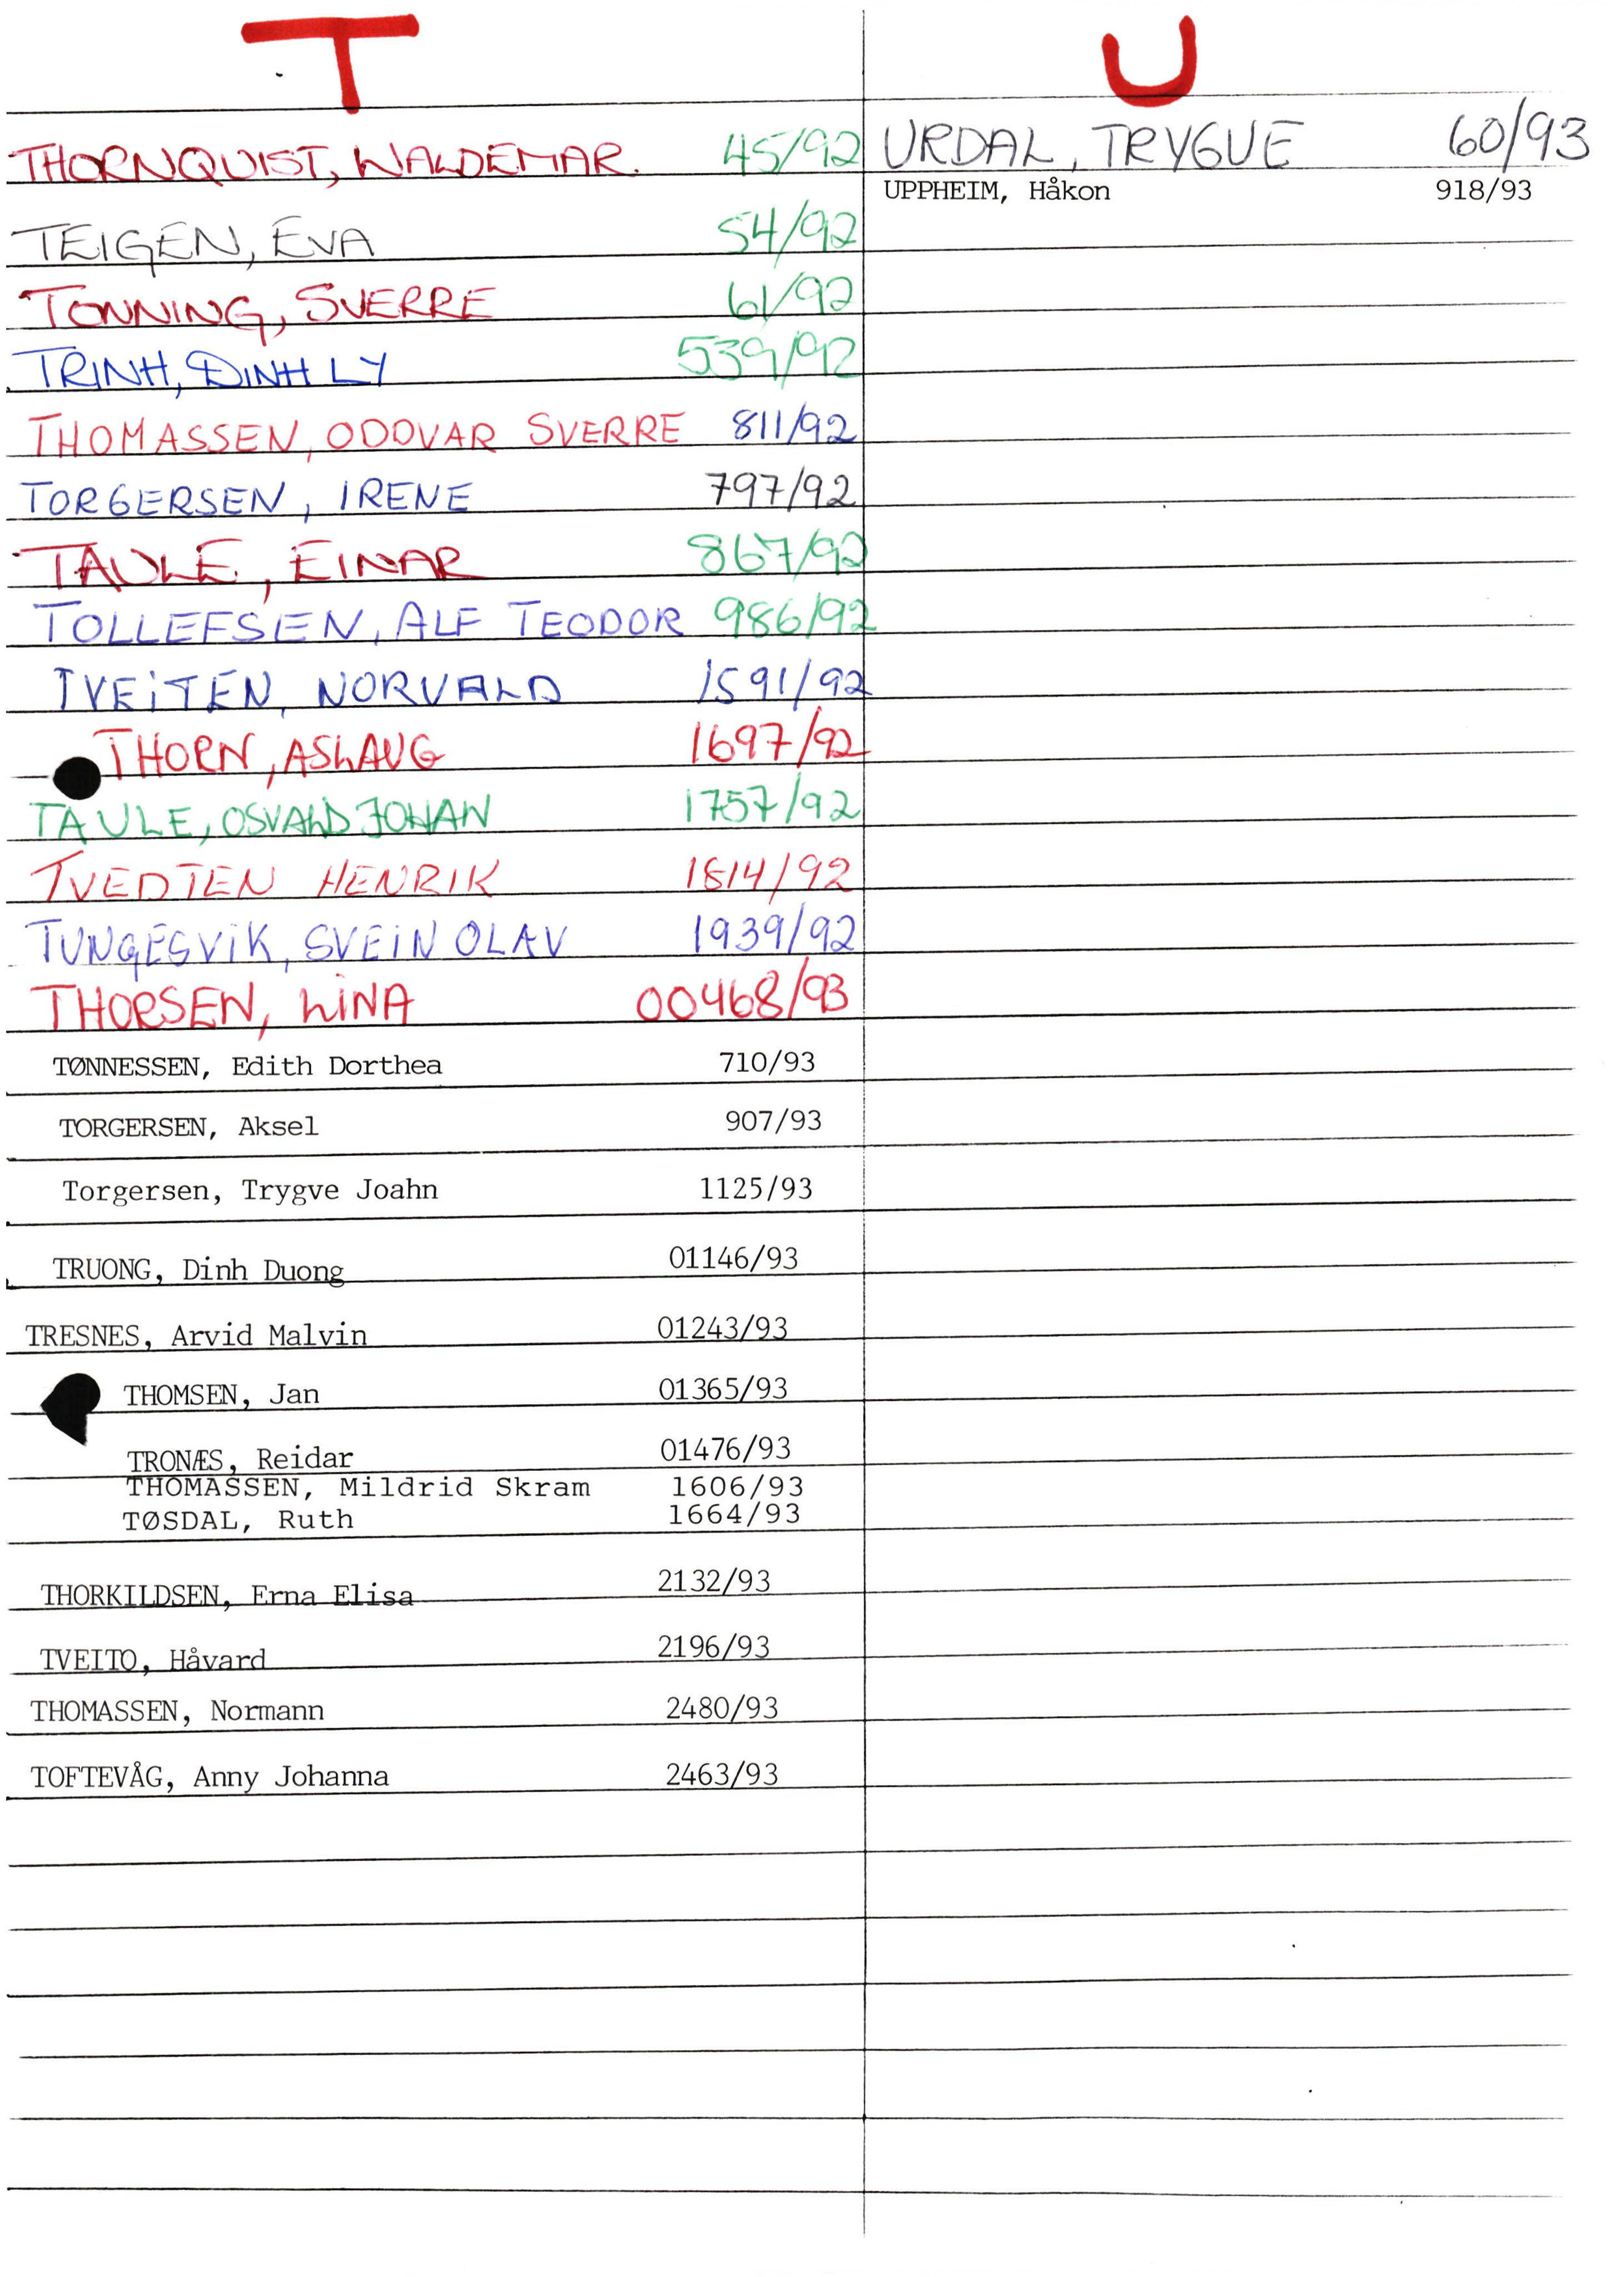 T
THORNQUIST, WALDEMAR. 45/92
TEIGEN, EVA 54/92
TONNING, SVERRE 61/92
TRINH, DINH LY 539/92
THOMASSEN, ODDVAR SVERRE 811/92
TORGERSEN, IRENE 797/92
TAULE, EINAR 867/92
TOLLEFSEN, ALF TEODOR 986/92
TVEITEN, NORVALD 1591/92
THORN, ASLAUG 1697/92
TAULE, OSVALD JOHAN 1757/92
TVEDTEN HENRIK 1814/92
TUNGESVIK, SVEIN OLAV 1939/92
THORSEN, LINA 00468/93
TØNNESSEN, Edith Dorthea 710/93
TORGERSEN, Aksel 907/93
Torgersen, Trygve Joahn 1125/93
TRUONG, Dinh Duong 01146/93
TRESNES, Arvid Malvin 01243/93
THOMSEN, Jan 01365/93
TRONÆS, Reidar 01476/93
THOMASSEN, Mildrid Skram 1606/93
TØSDAL, Ruth 1664/93
THORKILDSEN, Erna Elisa 2132/93
TVEITO, Håvard 2196/93
THOMASSEN, Normann 2480/93
TOFTEVÅG, Anny Johanna 2463/93
U
URDAL, TRYGVE 60/93
UPPHEIM, Håkon 918/93